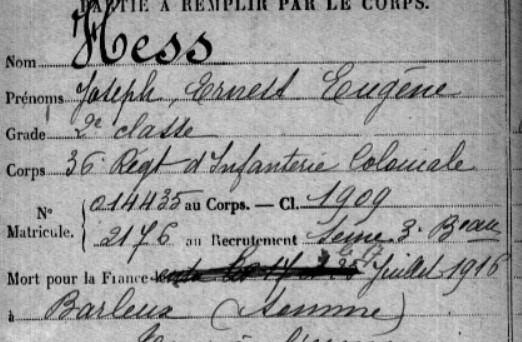 PARTIE À REMPLIR PAR LE CORPS.
Nom Hess
Prénoms Joseph, Ernest Eugène
Grade 2e classe
Corps 36e Régt d'Infanterie Coloniale
N° Matricule. { 014435 au Corps. — Cl. 1909
2176 au Recrutement Seine 3e Beau
Mort pour la France Juillet 1916
à Barleux (Somme)